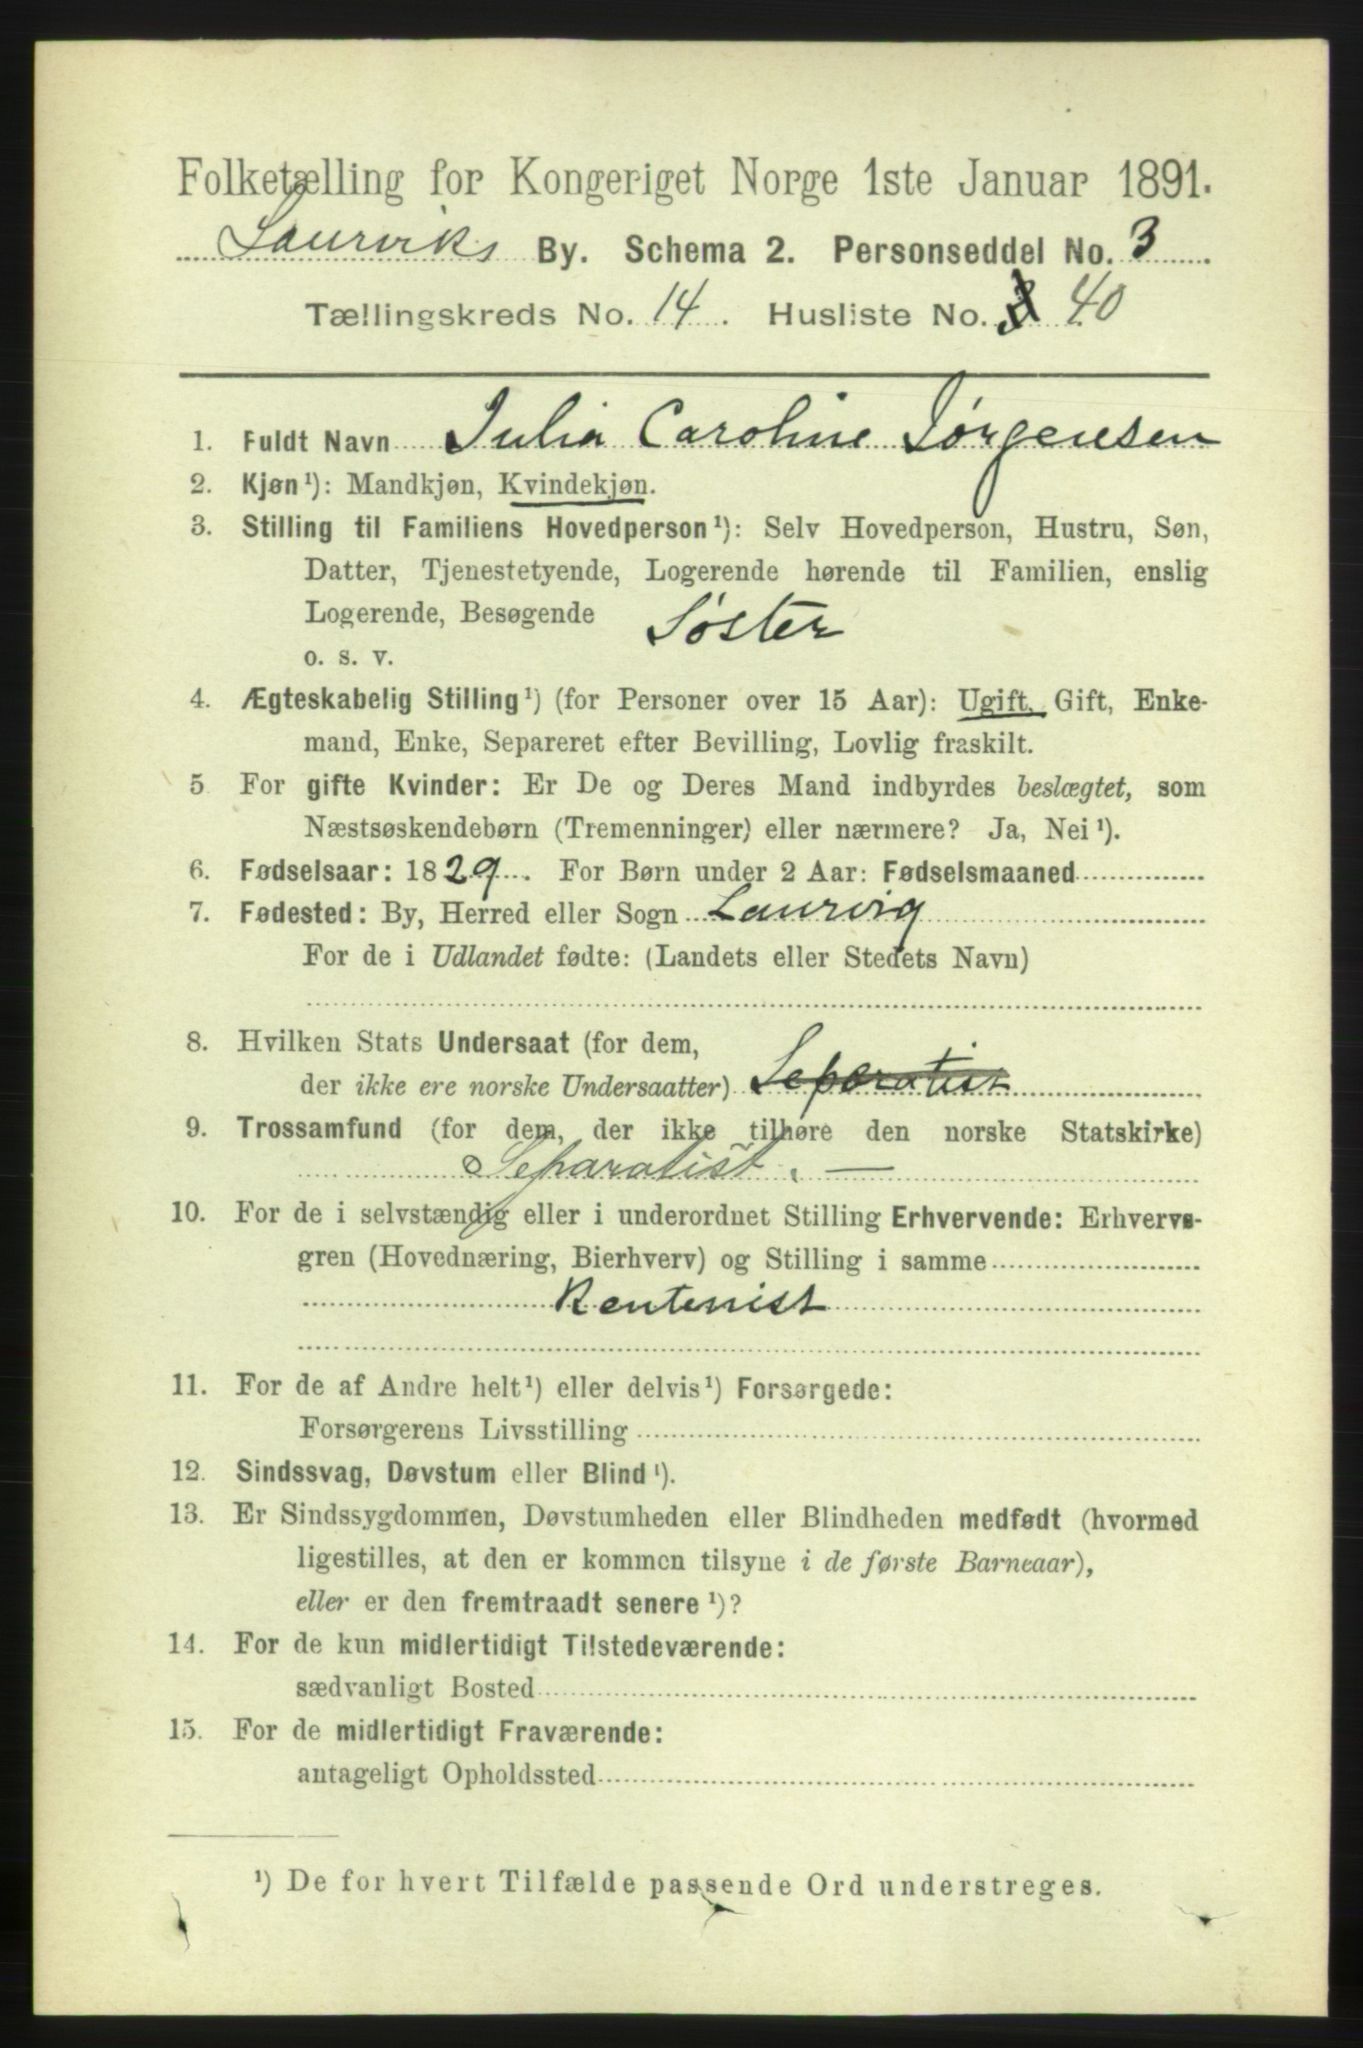 Folketælling for Kongeriget Norge 1ste Januar 1891.
Laurviks By. Schema 2. Personseddel No. 3
Tællingskreds No. 14. Husliste No. 40
1. Fuldt Navn Julia Caroline Jørgensen
2. Kjøn ¹): Mandkjøn, Kvindekjøn.
3. Stilling til Familiens Hovedperson ¹): Selv Hovedperson, Hustru, Søn,
Datter, Tjenestetyende, Logerende hørende til Familien, enslig
Logerende, Besøgende Søster
o. s. v.
4. Ægteskabelig Stilling ¹) (for Personer over 15 Aar): Ugift, Gift, Enke-
mand, Enke, Separeret efter Bevilling, Lovlig fraskilt.
5 For gifte Kvinder: Er De og Deres Mand indbyrdes beslægtet, som
Næstsøskendebørn (Tremenninger) eller nærmere? Ja, Nei ¹).
6. Fødselsaar: 1829. For Børn under 2 Aar: Fødselsmaaned
7. Fødested: By, Herred eller Sogn Laurvig
For de i Udlandet fødte: (Landets eller Stedets Navn)
8. Hvilken Stats Undersaat (for dem,
der ikke ere norske Undersaatter) Separatist
9. Trossamfund (for dem, der ikke tilhøre den norske Statskirke)
Separatist. —
10. For de i selvstændig eller i underordnet Stilling Erhvervende: Erhvervs-
gren (Hovednæring, Bierhverv) og Stilling i samme
Rentenist
11. For de af Andre helt ¹) eller delvis ¹) Forsørgede:
Forsørgerens Livsstilling
12. Sindssvag, Døvstum eller Blind ¹).
13. Er Sindssygdommen, Døvstumheden eller Blindheden medfødt (hvormed
ligestilles, at den er kommen tilsyne i de første Barneaar),
eller er den fremtraadt senere ¹)?
14. For de kun midlertidigt Tilstedeværende:
sædvanligt Bosted
15. For de midlertidigt Fraværende:
antageligt Opholdssted
¹) De for hvert Tilfælde passende Ord understreges.